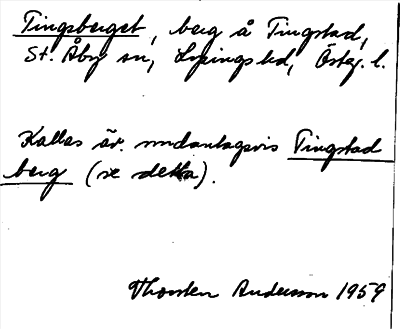 Tingsberget, berg å Tingstad,
St. Åby sn, Lysings hd, Östg. l.
Kallas äv. undantagsvis Tingstad
berg (se detta).
Thorsten Andersson 1959